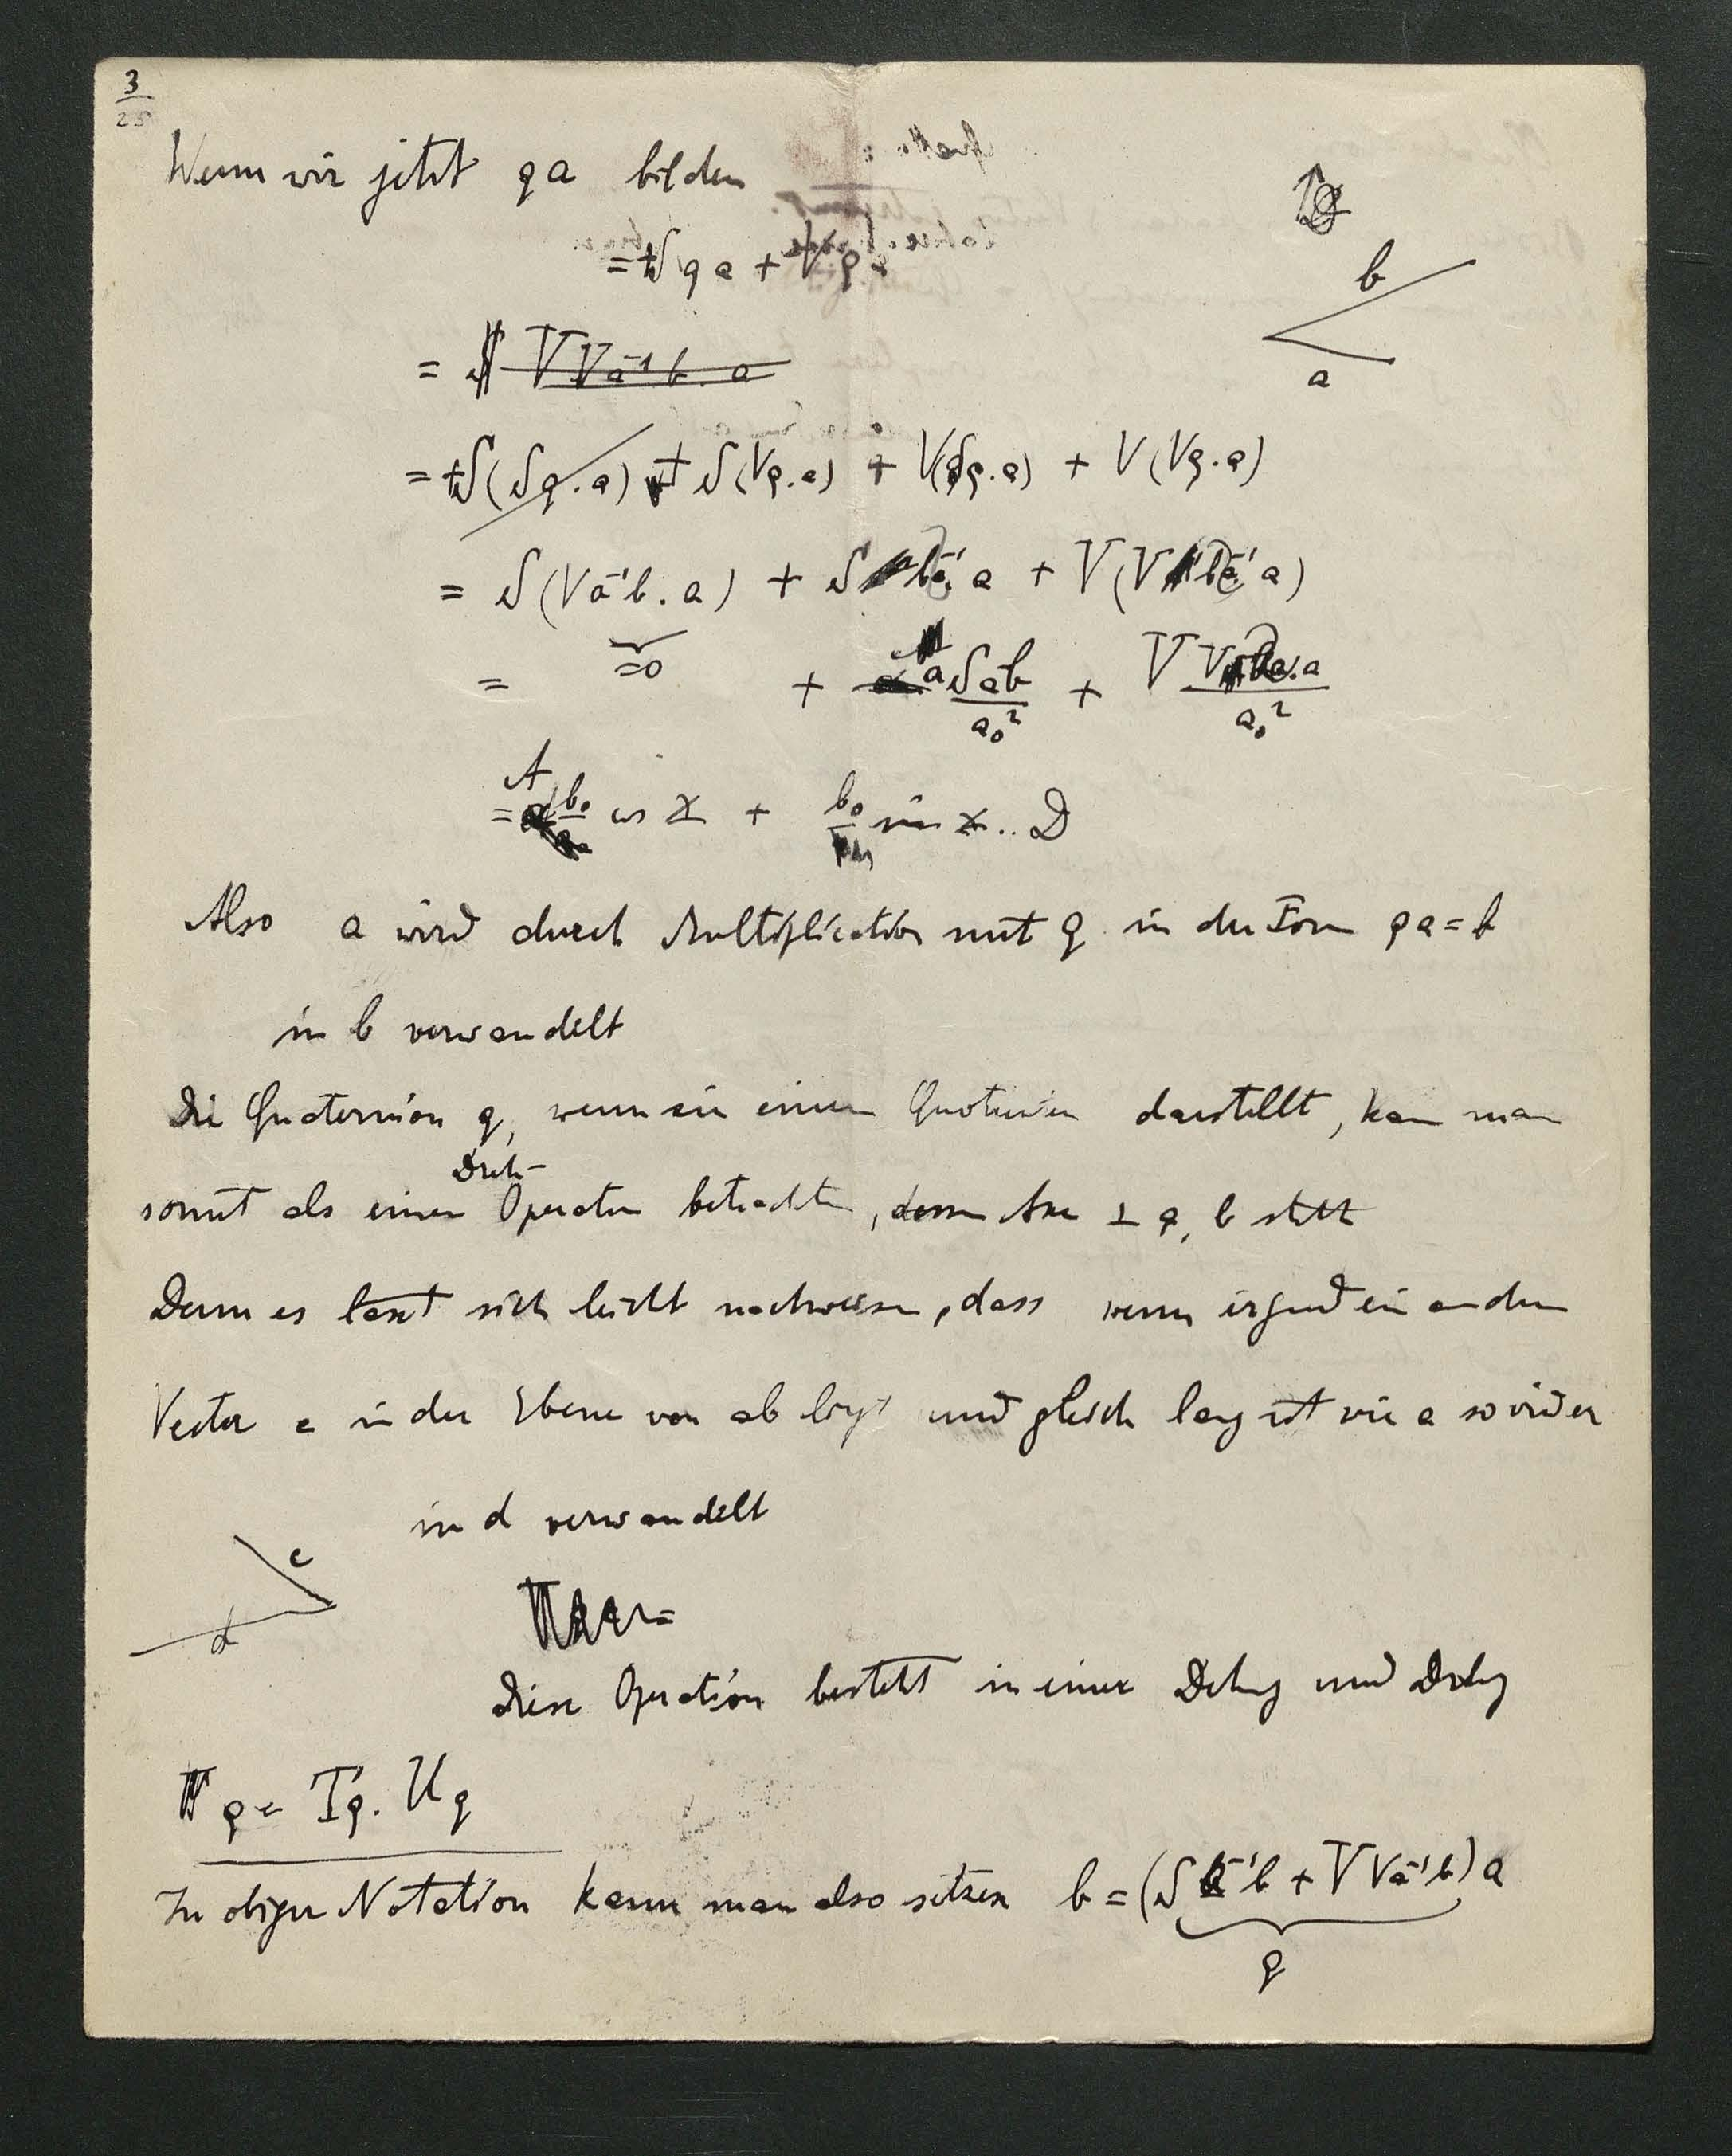 3
25
Wenn wir jetzt qa bilden
= + S q a + V q
b
a
= S V V a⁻¹ b . a
= + S (S q . a) + S (V q . a) + V (S q . a) + V (V q . a)
= S (V a⁻¹ b . a) + S b a⁻¹ a + V (V b a⁻¹ a)
= =0 + a S a b / a₀² + V V b a . a / a₀²
= A b₀ cos x + b₀ sin x . . D
Also a wird durch Multiplication mit q in der Form qa = b
in b verwandelt
Die Quaternion q, wenn sie einen Quotienten darstellt, kann man
Dreh-
somit als einen Operator betrachten, dessen Axe ⊥ a, b steht
Denn es lässt sich leicht nachweisen, dass wenn irgend ein andrer
Vector c in der Ebene von ab liegt und gleich lang ist wie a so wird er
in d verwandelt
c
d
Diese Operation besteht in einer Dehng und Drehg
q = Tq . Uq
In obiger Notation kann man also setzen b = (S a⁻¹ b + V V a⁻¹ b) a
q